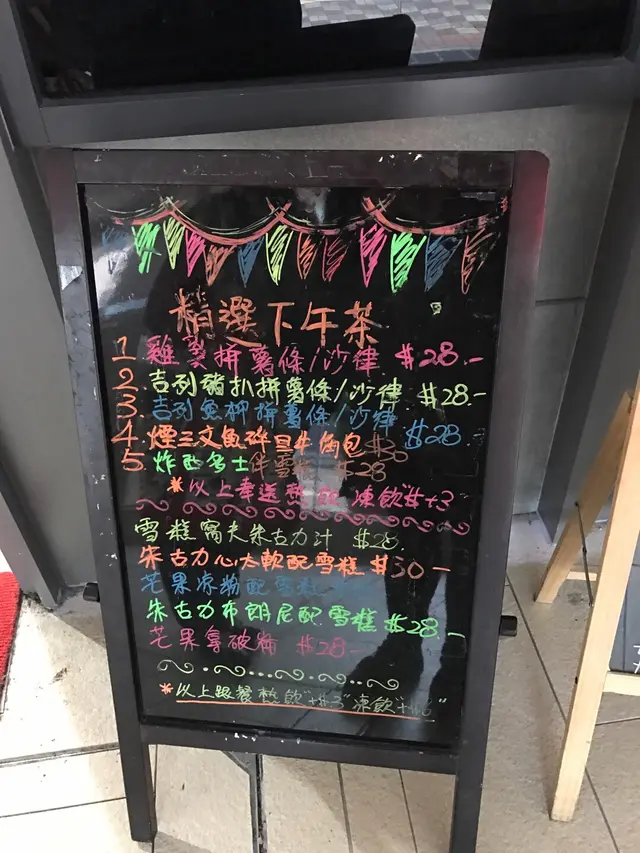 精選下午茶
1. 雞翼拼薯條/沙律 $28.-
2. 吉列豬扒拼薯條/沙律 $28.-
3. 吉列魚柳拼薯條/沙律 $28
4. 煙三文魚碎旦牛角包 $30
5. 炸西多士伴雪糕 $28
*以上奉送熱飲 凍飲"$+3"
雪糕窩夫朱古力汁 $28.
朱古力心太軟配雪糕 $30-
芒果 配雪糕
朱古力布朗尼配雪糕 $28.-
芒果拿破崙 $28-
*以上跟餐熱飲"+$3" 凍飲